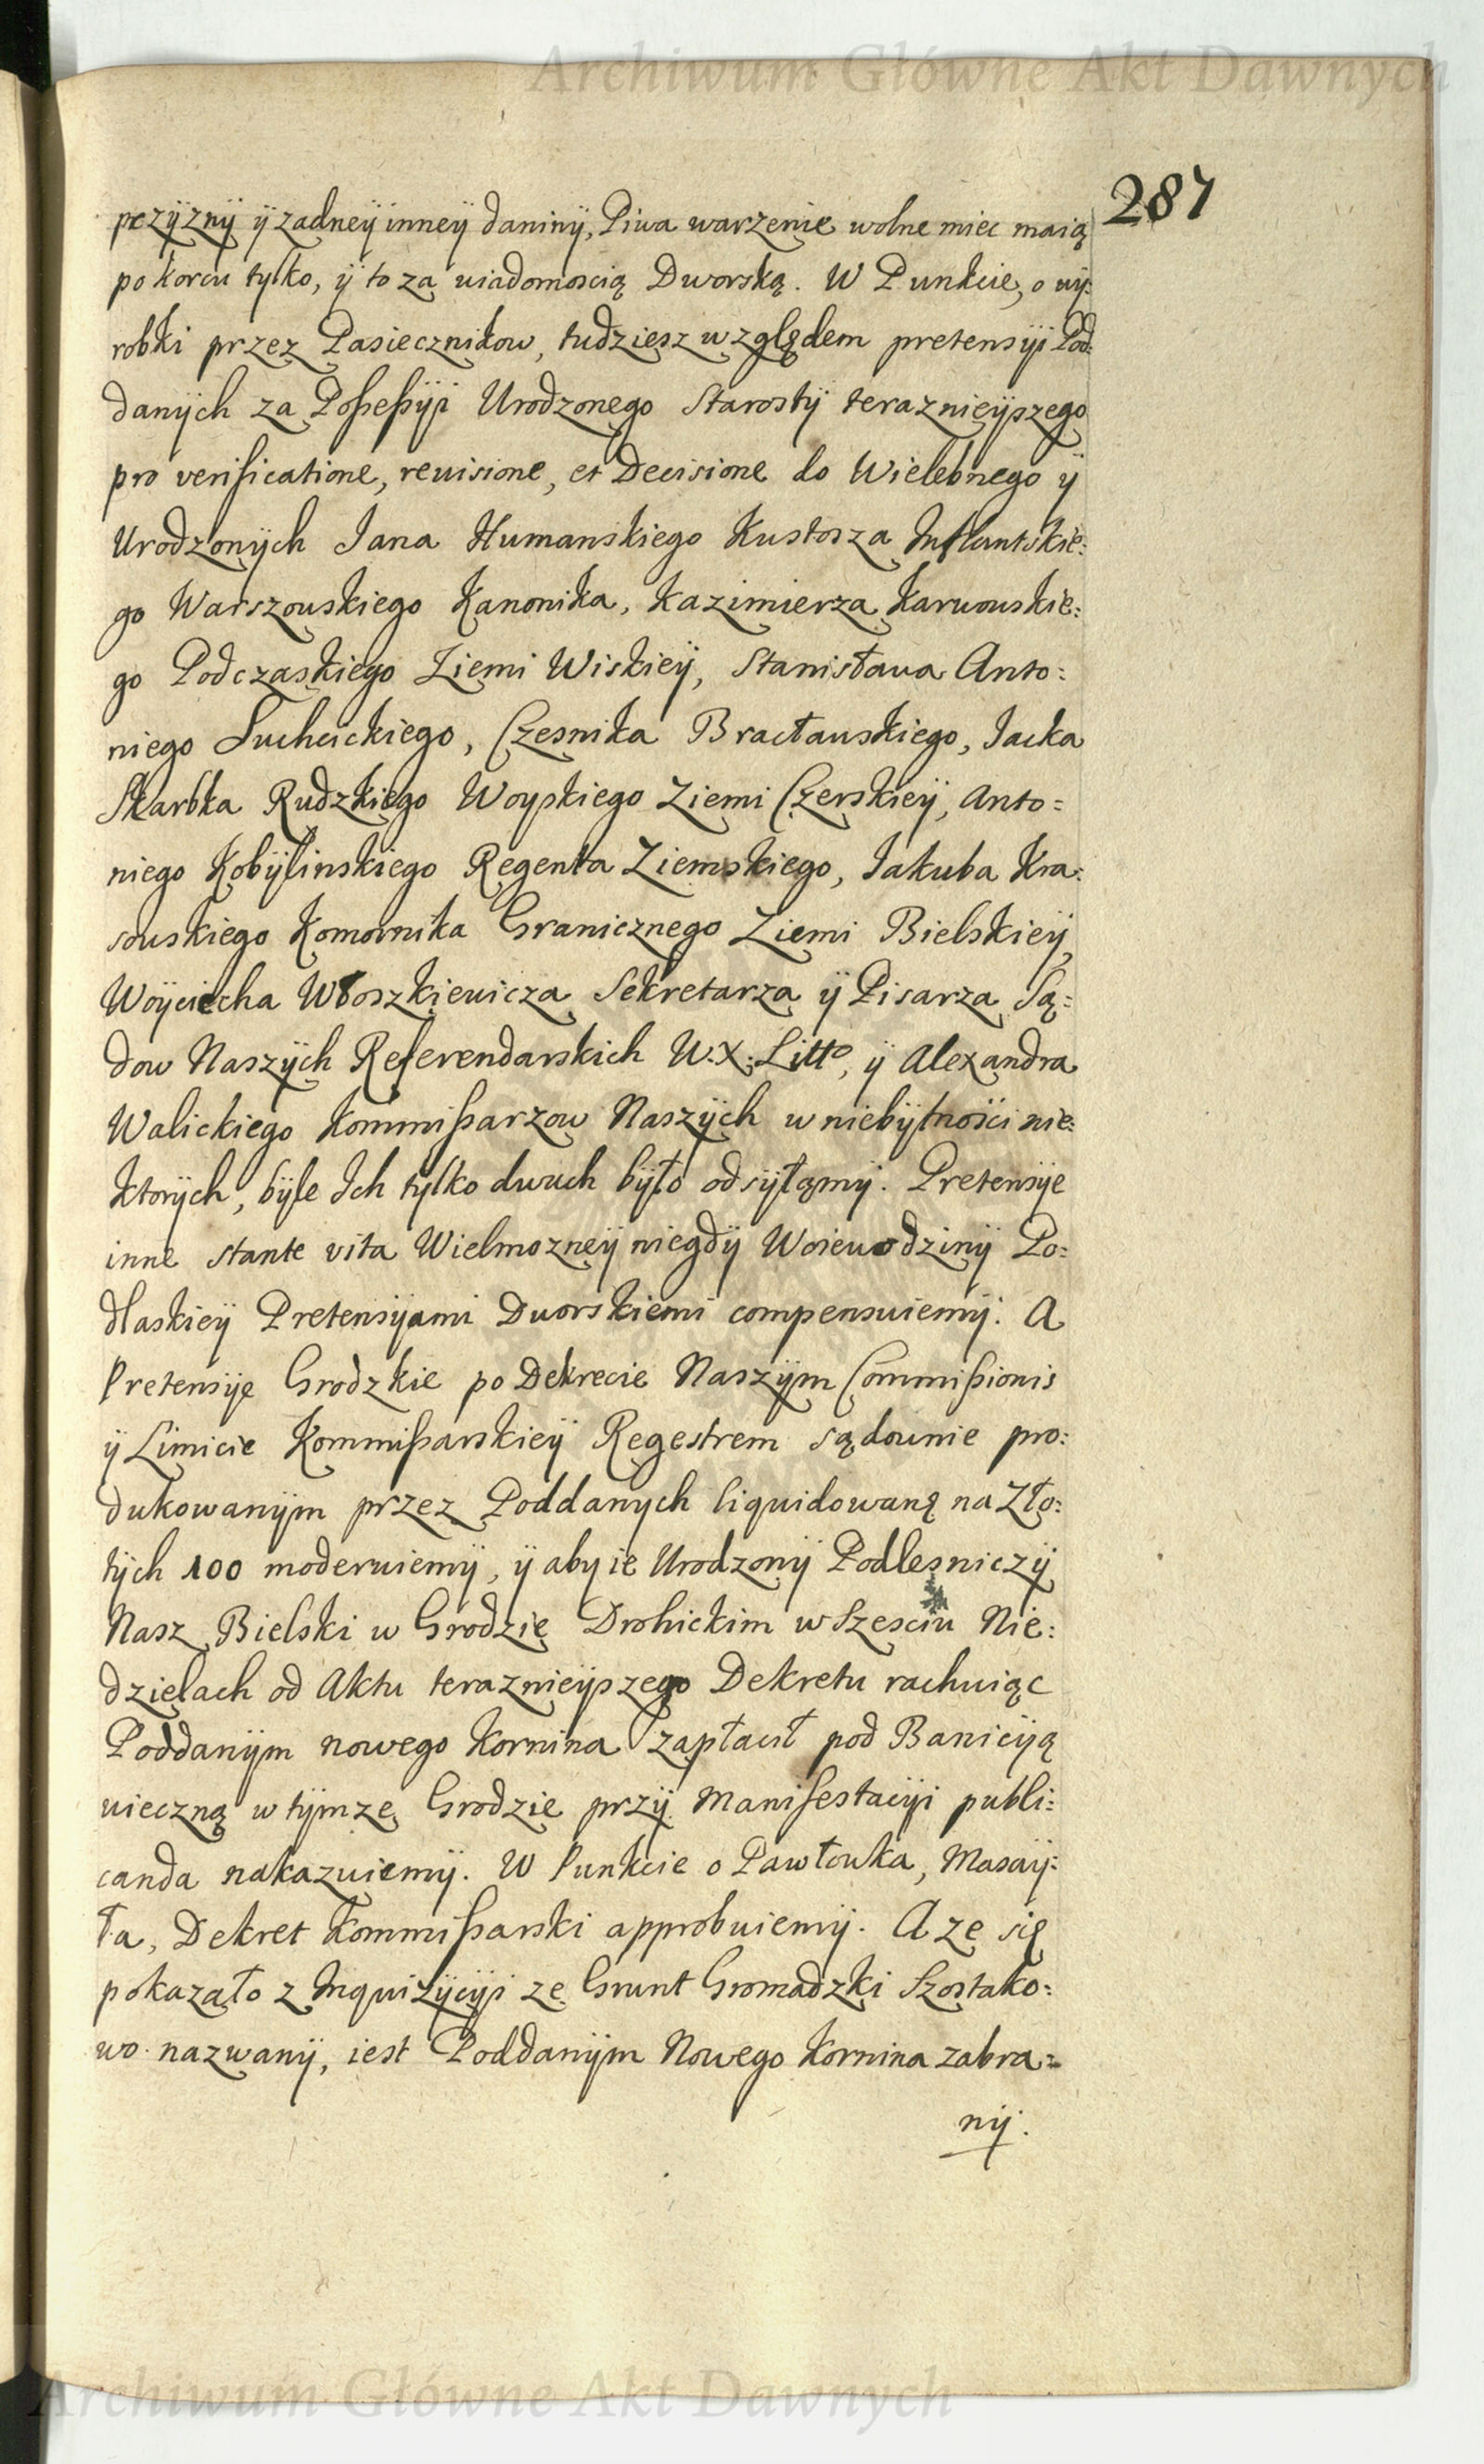 Archiwum Główne Akt Dawnych
287
pczÿznÿ ÿ zadneÿ inneÿ daninÿ, Piwa warzenie wolne miec maią
po korcu tylko, ÿ to za wiadomoscią Dworską. W Punkcie, o wÿ:
robki przez Pasiecznikow, tudziesz względem pretensÿi Pod:
danÿch za Poßeßÿi Urodzonego Starostÿ teraznieÿszego
pro verificatione, revisione, et Decisione do Wielebnego ÿ
Urodzonÿch Jana Humanskiego Kustosza Inflantskie:
go Warszowskiego Kanonika, Kazimierza Karwowskie:
go Podczaskiego Ziemi Wiskieÿ, Stanisława Anto:
niego Suchcickiego, Czesnika Bracławskiego, Jacka
Skarbka Rudzkiego Woyskiego Ziemi Czerskieÿ, Anto=
niego Kobÿlinskiego Regenta Ziemskiego, Jakuba Kra:
sowskiego Komornika Granicznego Ziemi Bielskieÿ,
Woÿciecha Włoszkiewicza Sekretarza ÿ Pisarza Są:
dow Naszÿch Referendarskich W.X. Litto, ÿ Alexandra
Walickiego Kommißarzow Naszÿch w niebÿtności nie:
ktorÿch, bÿle Ich tylko dwuch bÿło odsÿłamÿ. Pretensÿe
inne stante vita Wielmozneÿ niegdÿ Woiewodzinÿ Po:
dlaskieÿ Pretensÿami Dworskiemi compensuiemÿ. A
Pretensÿe Grodzkie po Dekrecie Naszÿm Commißionis
ÿ Limicie Kommißarskieÿ Regestrem sądownie pro:
dukowanÿm przez Poddanych liquidowaną na Zło:
tÿch 100 moderuiemÿ, ÿ aby ie Urodzonÿ Podlesniczÿ
Nasz Bielski w Grodzie Drohickim w Szesciu Nie:
dzielach od Aktu teraznieÿszego Dekretu rachuiąc
Poddanÿm nowego Kornina zapłacił pod Banicÿą
wieczną w tÿmze Grodzie przÿ Manifestacÿi publi:
canda nakazuiemÿ. W Punkcie o Pawłowka, Masaÿ:
ła, Dekret Kommißarski approbuiemÿ. A ze się
pokazało z Inquizÿcÿi ze Grunt Gromadzki Szostako:
wo nazwanÿ, iest Poddanÿm Nowego Kornina zabra=
nÿ.
Archiwum Główne Akt Dawnych